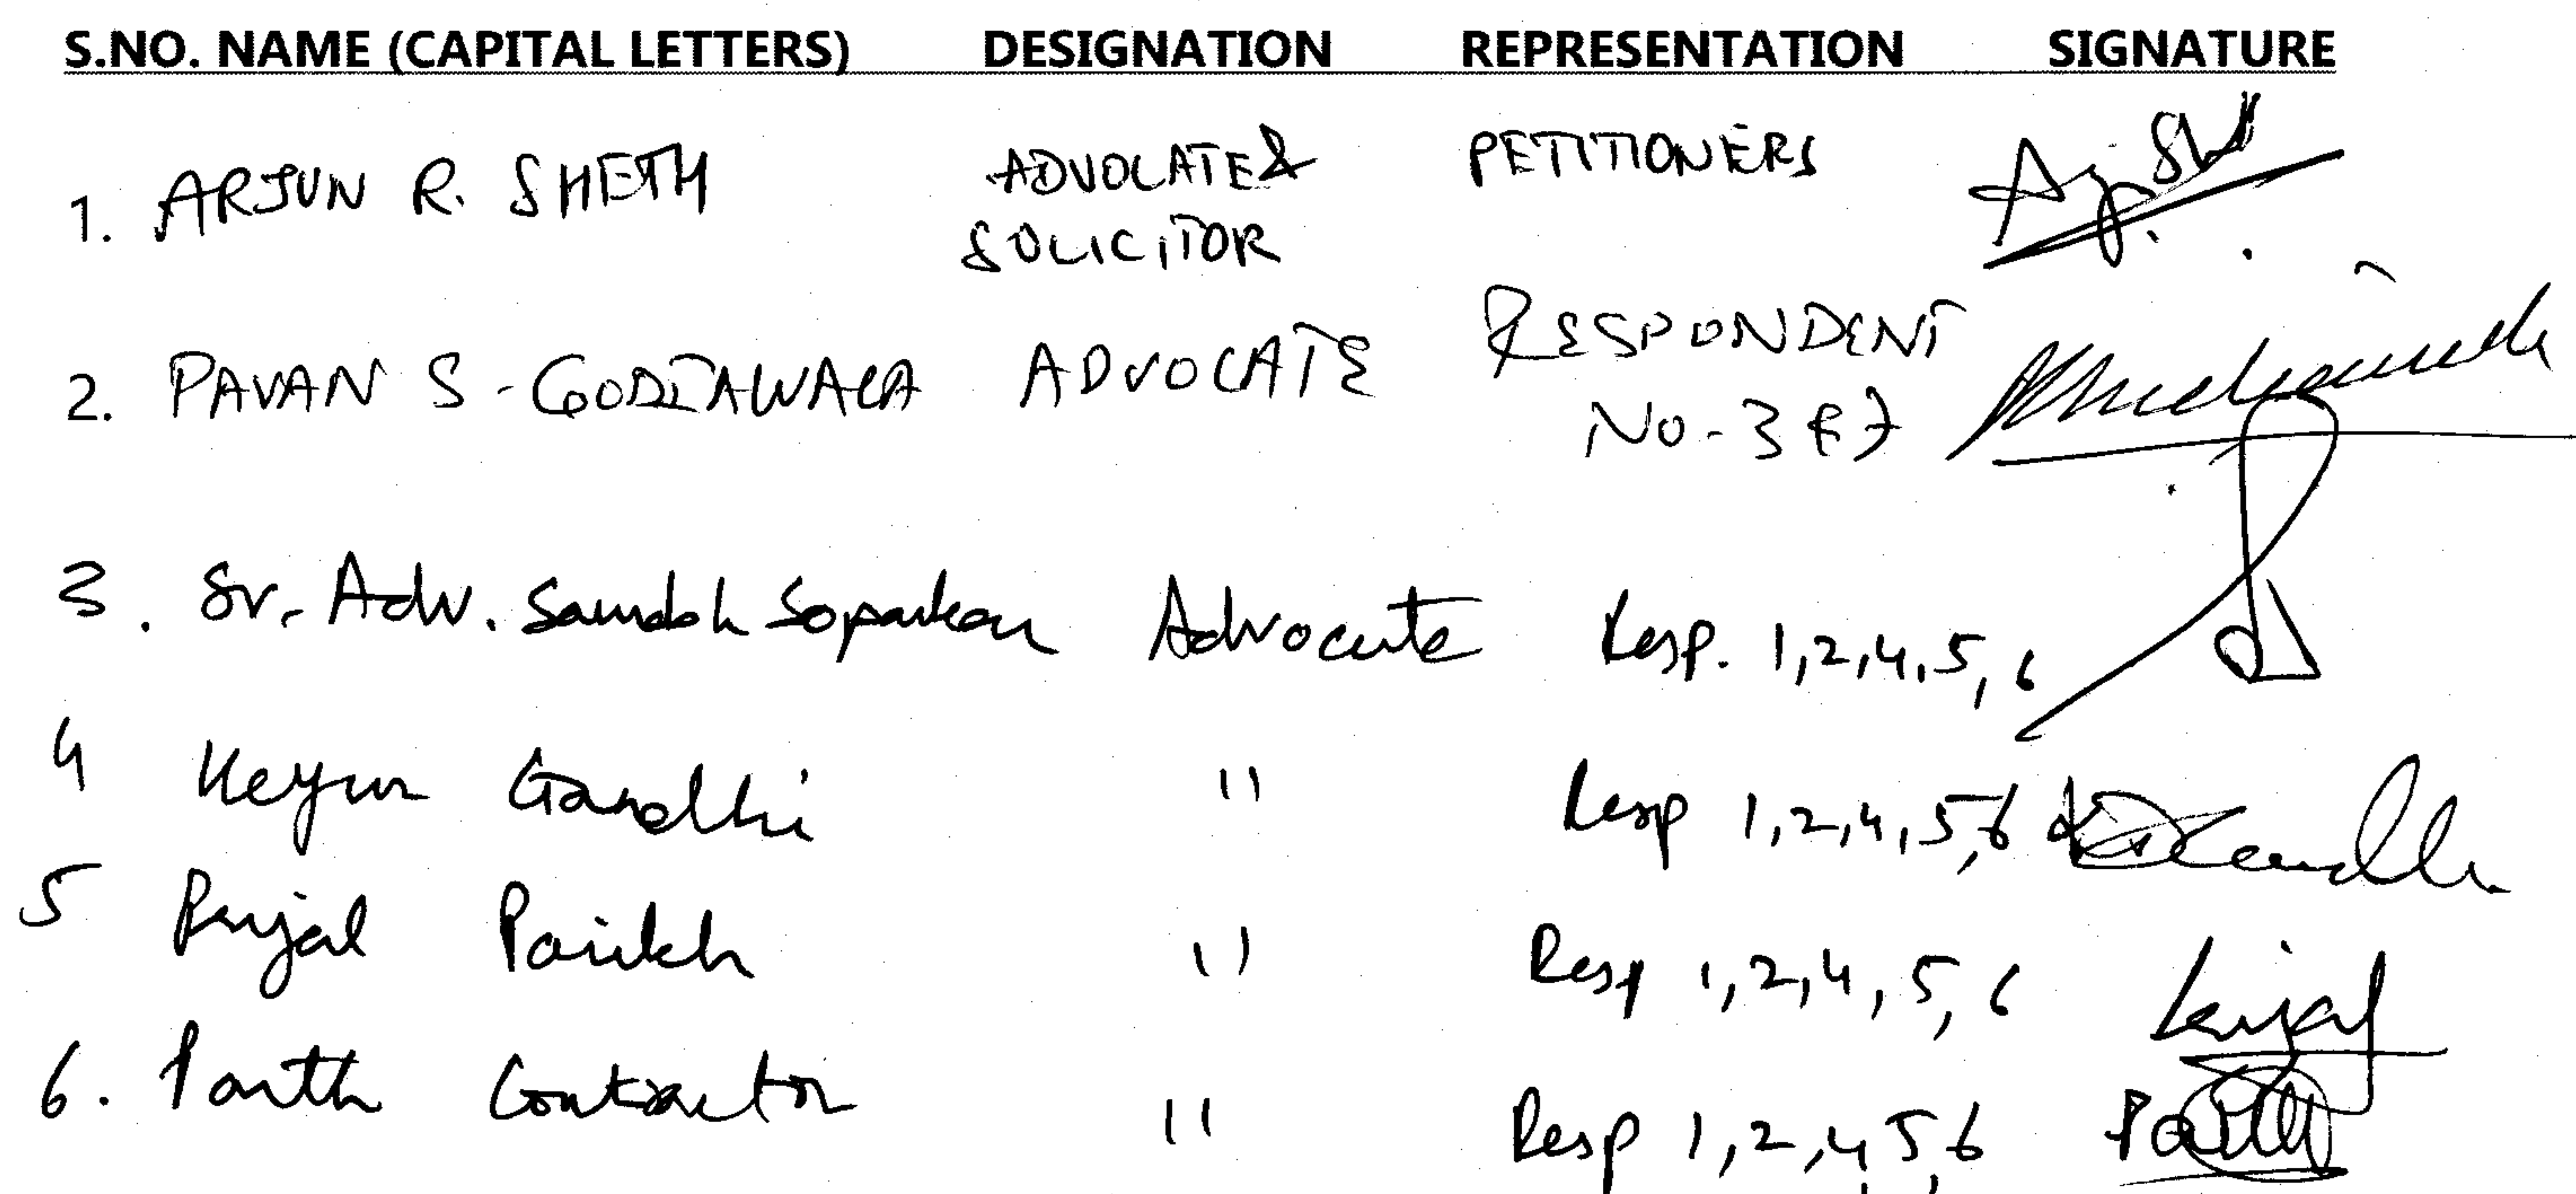 S.NO. NAME (CAPITAL LETTERS) DESIGNATION REPRESENTATION SIGNATURE
1. ARJUN R. SHETH ADVOCATE & PETITIONERS
SOLICITOR
2. PAVAN S. GODIAWALA ADVOCATE RESPONDENT
No-3 & 7
3. Sr. Adv. Saurabh Soparkar Advocate Resp. 1,2,4,5,6
4 Keyur Gandhi " Resp 1,2,4,5,6
5 Parikh " Resp 1,2,4,5,6
6. Parth Contractor " Resp 1,2,4,5,6 Parth